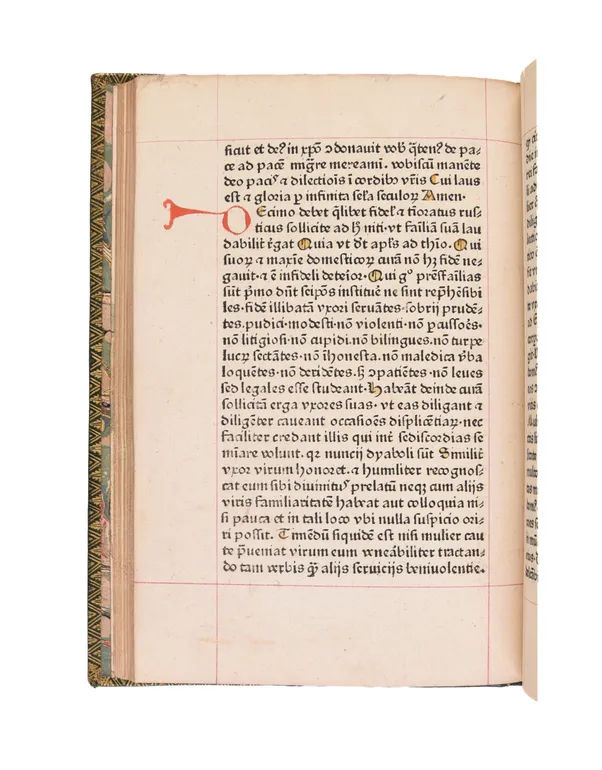 ficut et de⁹ in xp̄o ↄ donauit vob̄ q̄ten⁹ de pa⸗
ce ad pacē mig̅re mereami. vobiscū manēte
deo paciˢ ⁊ dilectiōis ī cordib⁹ vr̄is Cui laus
est ⁊ gloria p̱ infinita secl̄a seculoꝝ Amen·
DEcimo debet q̄libet fidel̓ ⁊ tīoratus rus⸗
ticus sollicite ad h̄ niti· vt fāiliā suā lau
dabilit̓ r̓gat Quia vt d̄t apl̄s ad thīo. Qui
suoꝝ ⁊ maxīe domesticoꝝ curā nō hꝫ fidē ne⸗
gauit·⁊ ē infideli deteior· Qui g⁰ pr̄esfāilias
sūt p̓mo dn̄t seip̄os instituē ne sint rep̓hēsibi
les·fidē illibatā vxori seruātes·sobrij prudē⸗
tes·pudici·modesti·nō violenti·nō p̱cussoēs·
nō litigiosi·nō cupidi·nō bilingues·nō turpe
lucꝝ sectātes·nō īhonesta·nō maledica v̓ba
loquētes·nō deridētes·ꞩ ꝫpatiētes·nō leues
sed legales esse studeant· Habeāt deinde curā
sollicitā erga vxores suas· vt eas diligant ⁊
diligēter caueant occasiōes displicētiaꝝ· nec
faciliter credant illis qui int̓ se discordias se
mīare volunt· qꝛ nuncij dyaboli sūt Similit̓
vxor virum honoret· ⁊ humiliter recognos⸗
cat eum sibi diuinitꝰ prelatū neqꝫ cum alijs
viris familiaritatē habeat aut colloquia ni⸗
si pauca et in tali loco vbi nulla suspicio ori⸗
ri possit· Timēdū siquidē est nisi mulier cau
te p̓ueniat virum eum ven̓abiliter tractan⸗
do tam verbis q̄ꝫ alijs seruicijs beniuolentie·